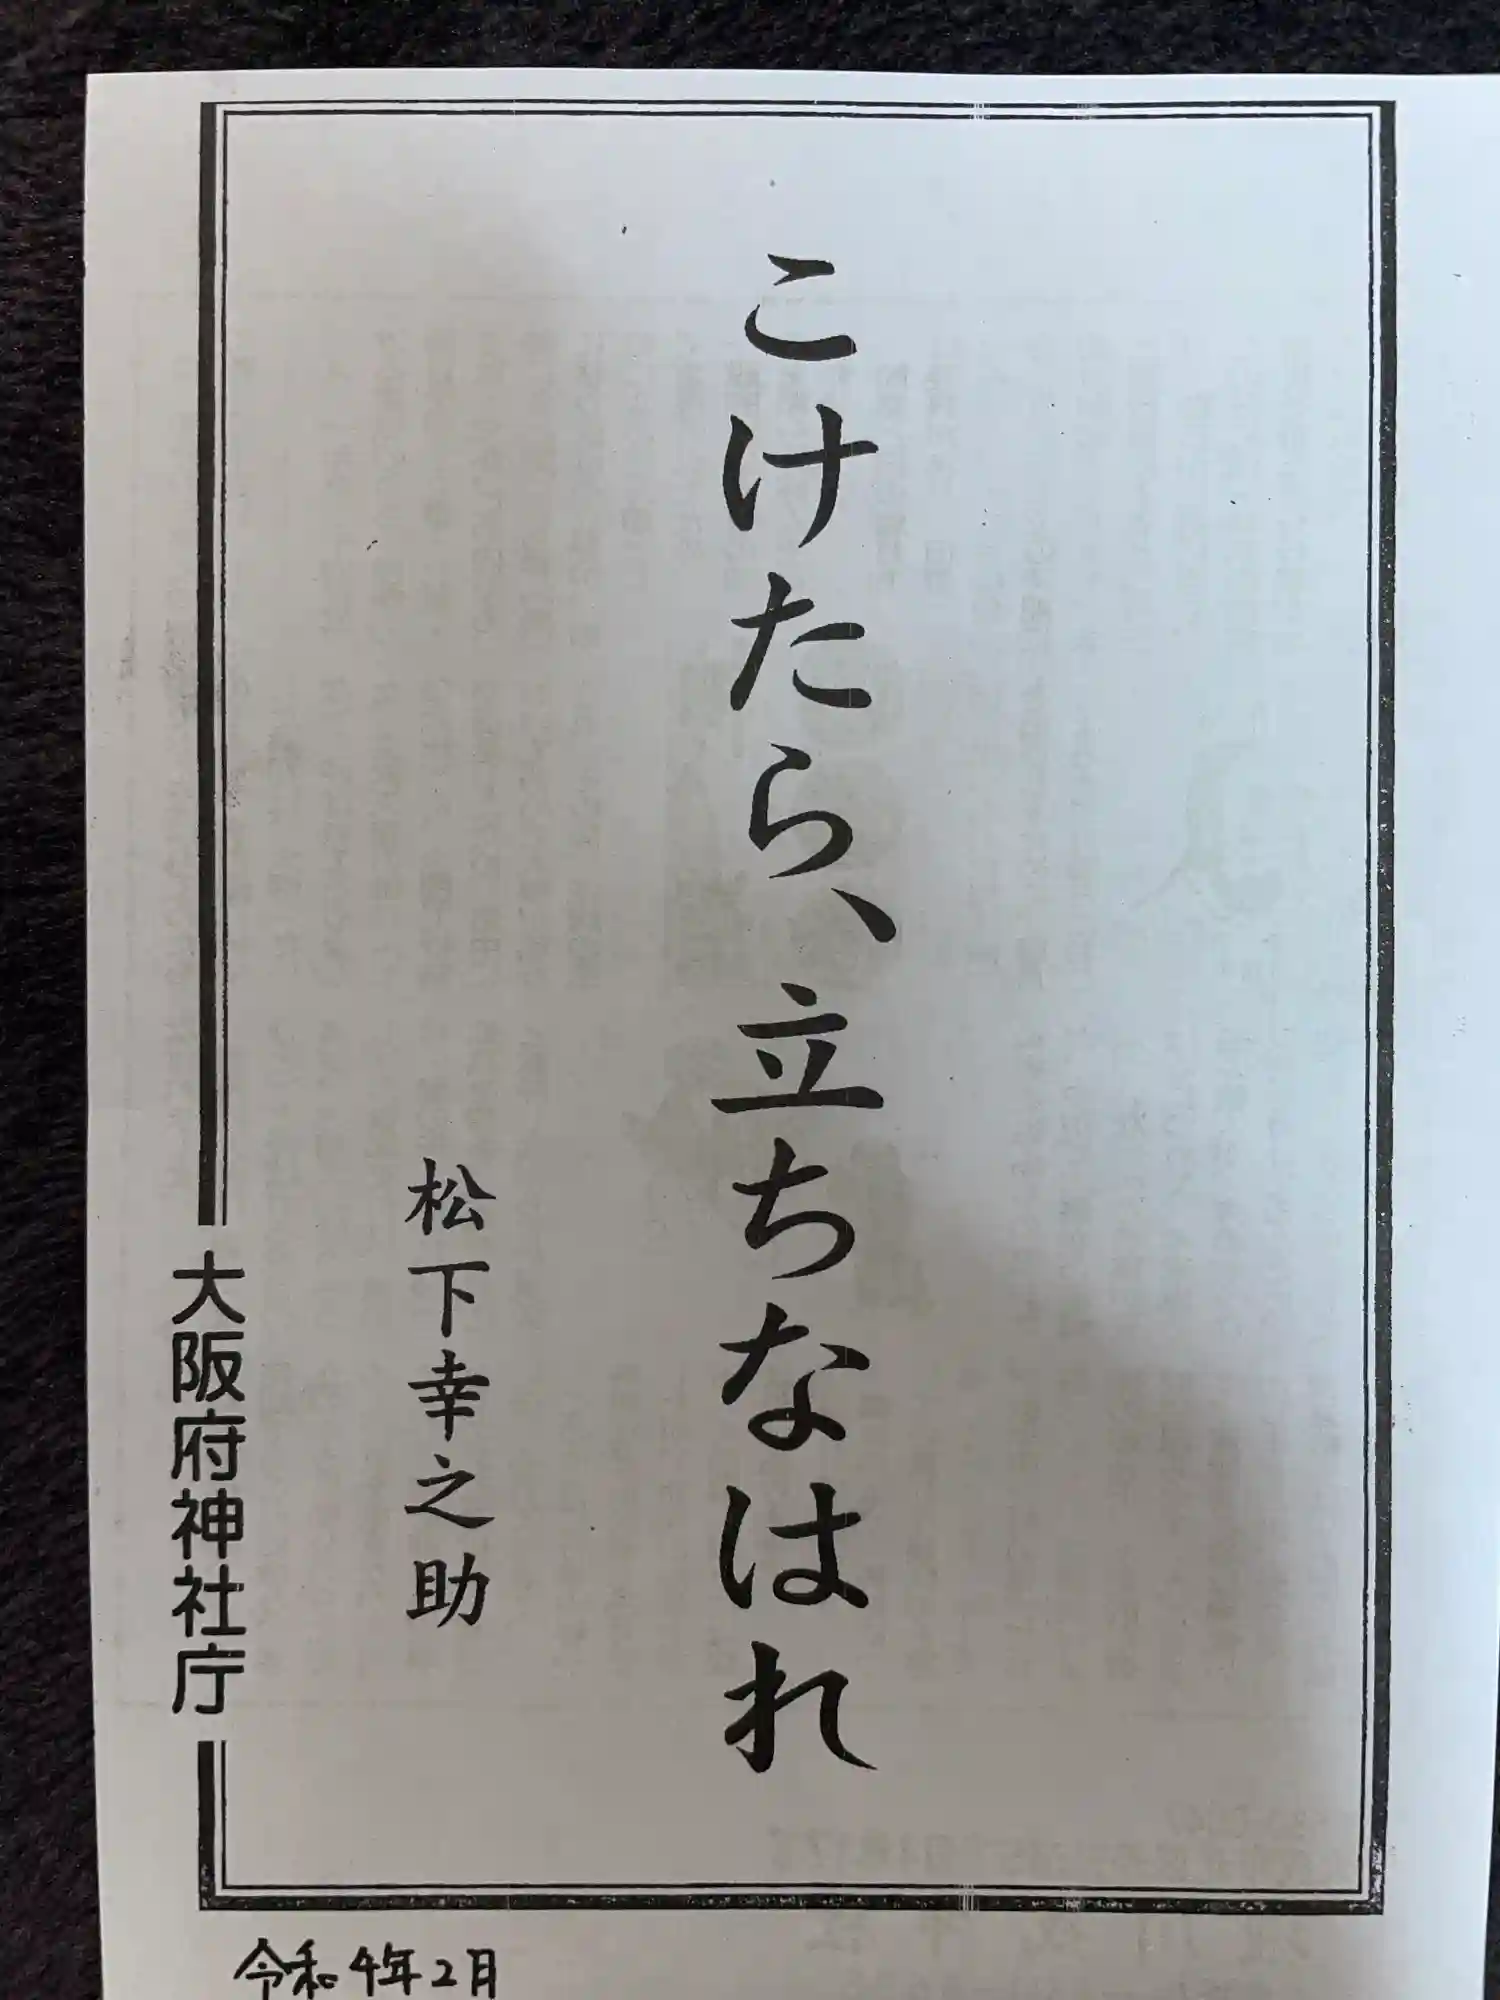 こけたら、立ちなはれ
松下幸之助
大阪府神社庁
令和4年2月